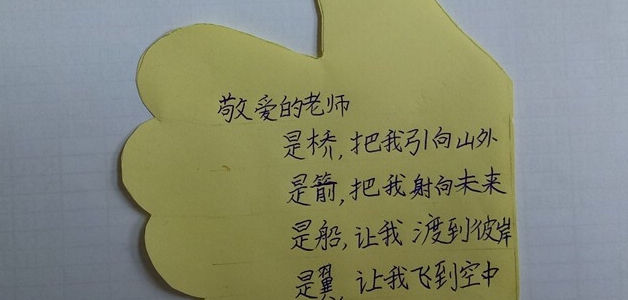 敬爱的老师
是桥,把我引向山外
是箭,把我射向未来
是船,让我渡到彼岸
是翼,让我飞到空中